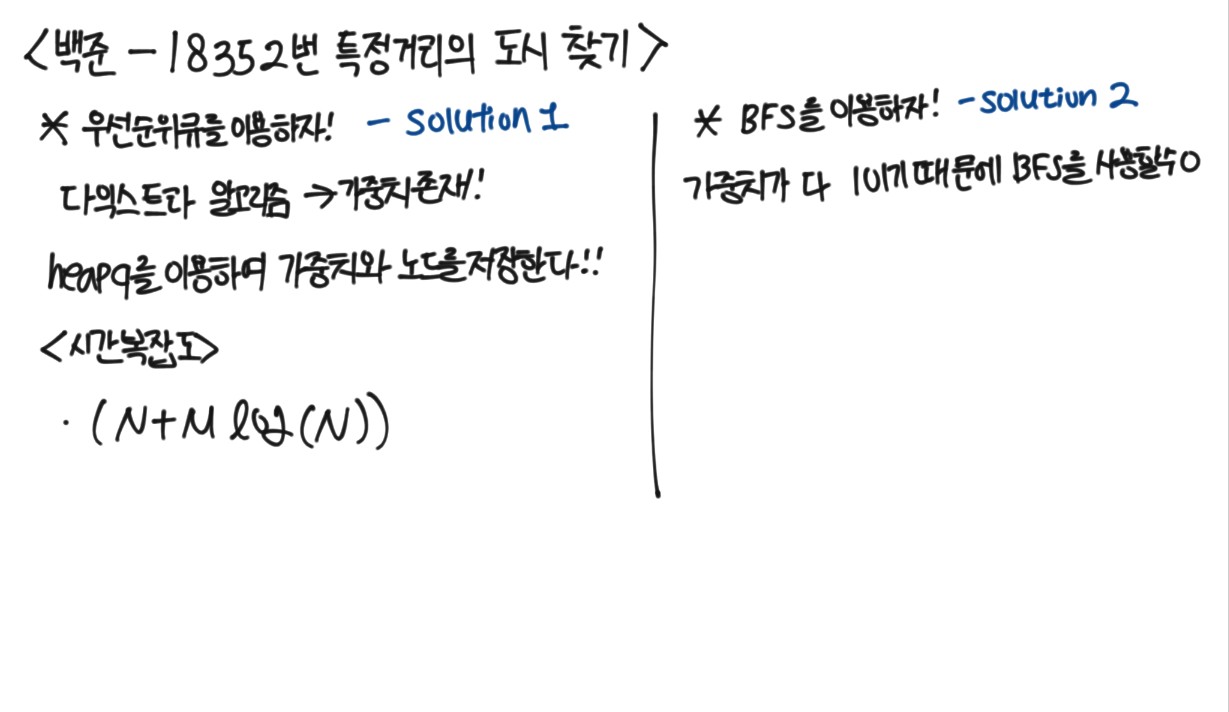 <백준 - 18352번 특정거리의 도시 찾기>
* 우선순위큐를 이용하자! - Solution 1
다익스트라 알고리즘 → 가중치존재!
heapq를 이용하여 가중치와 노드를 저장한다!!
<시간복잡도>
· (N+M log(N))
* BFS를 이용하자! - Solution 2
가중치가 다 1이기 때문에 BFS를 사용할수O